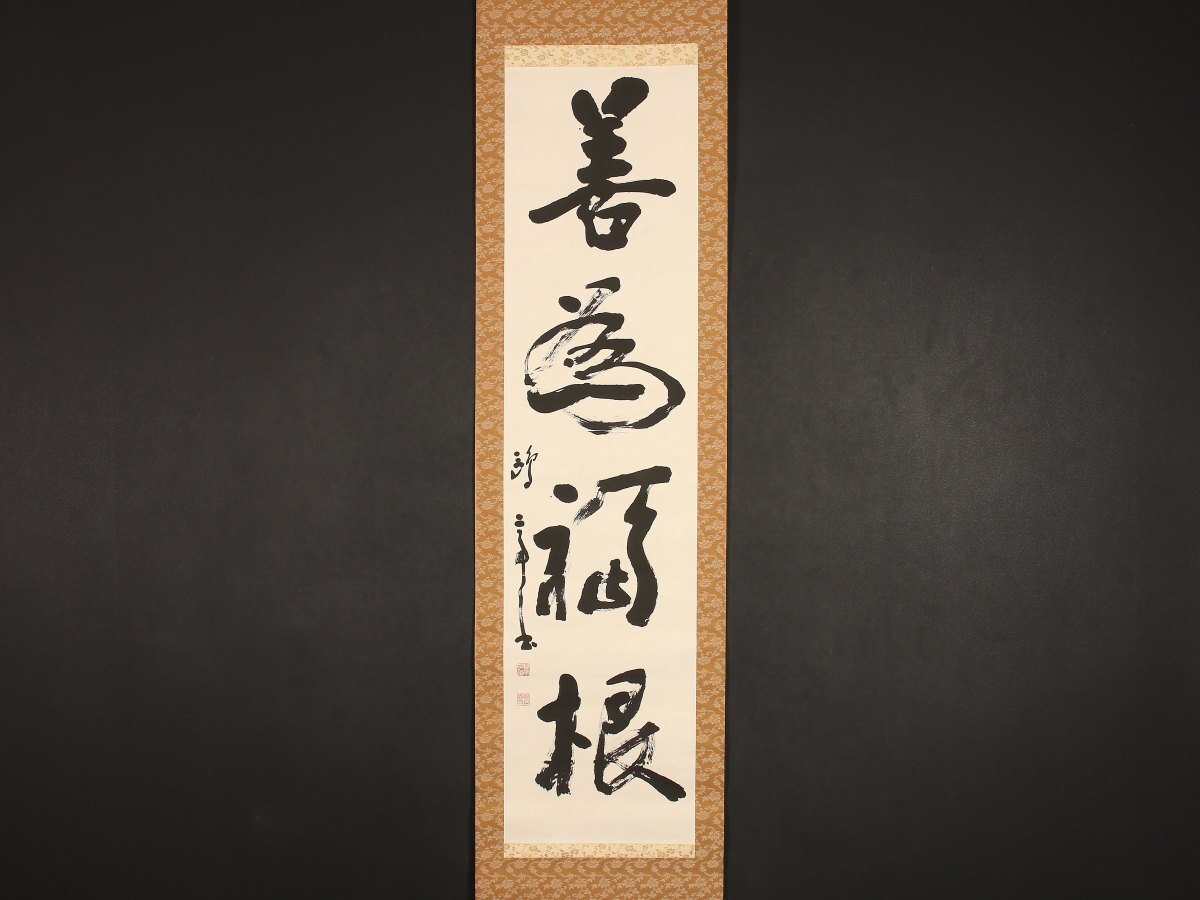 善為福根